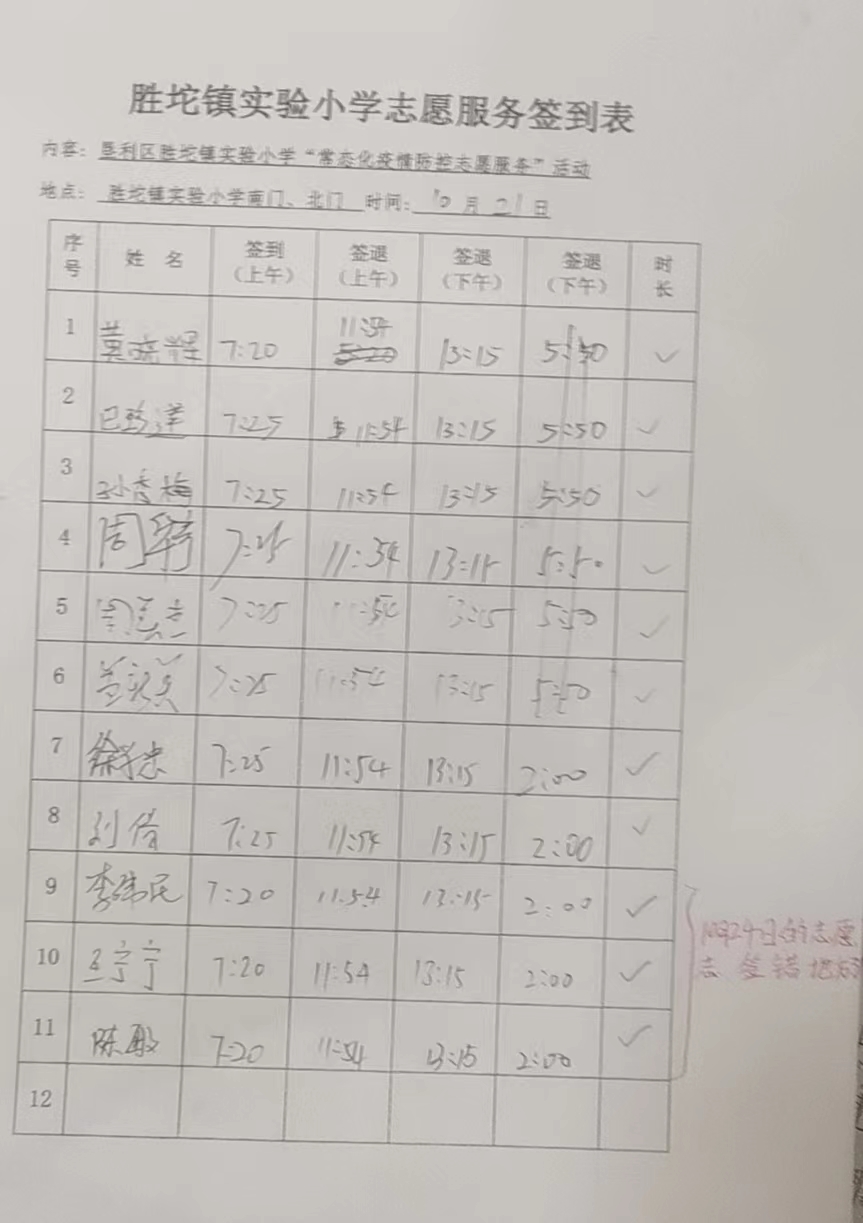 胜坨镇实验小学志愿服务签到表
内容：垦利区胜坨镇实验小学“常态化疫情防控志愿服务”活动
地点：胜坨镇实验小学南门、北门 时间：10月21日
序号 姓名 签到（上午） 签退（上午） 签退（下午） 签退（下午） 时长
1 7:20 11:54 13:15 5:50 ✓
2 7:25 11:54 13:15 5:50 ✓
3 孙秀梅 7:25 11:54 13:15 5:50 ✓
4 周 7:25 11:54 13:15 5:50 ✓
5 7:25 11:54 13:15 5:50 ✓
6 7:25 11:54 13:15 5:50 ✓
7 徐 7:25 11:54 13:15 2:00 ✓
8 刘倩 7:25 11:54 13:15 2:00 ✓
9 李伟民 7:20 11:54 13:15 2:00 ✓
10 宁宁 7:20 11:54 13:15 2:00 ✓
11 陈 7:20 11:54 13:15 2:00 ✓
12
10月24日的志愿
志 签错地方